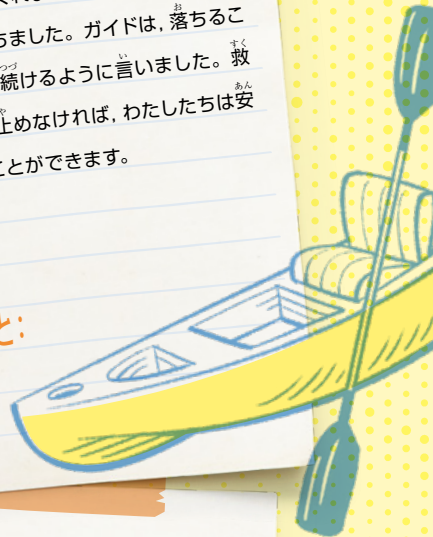 ちました。ガイドは, 落ちるこ
続けるように言いました。救
止めなければ, わたしたちは安
ことができます。
と: